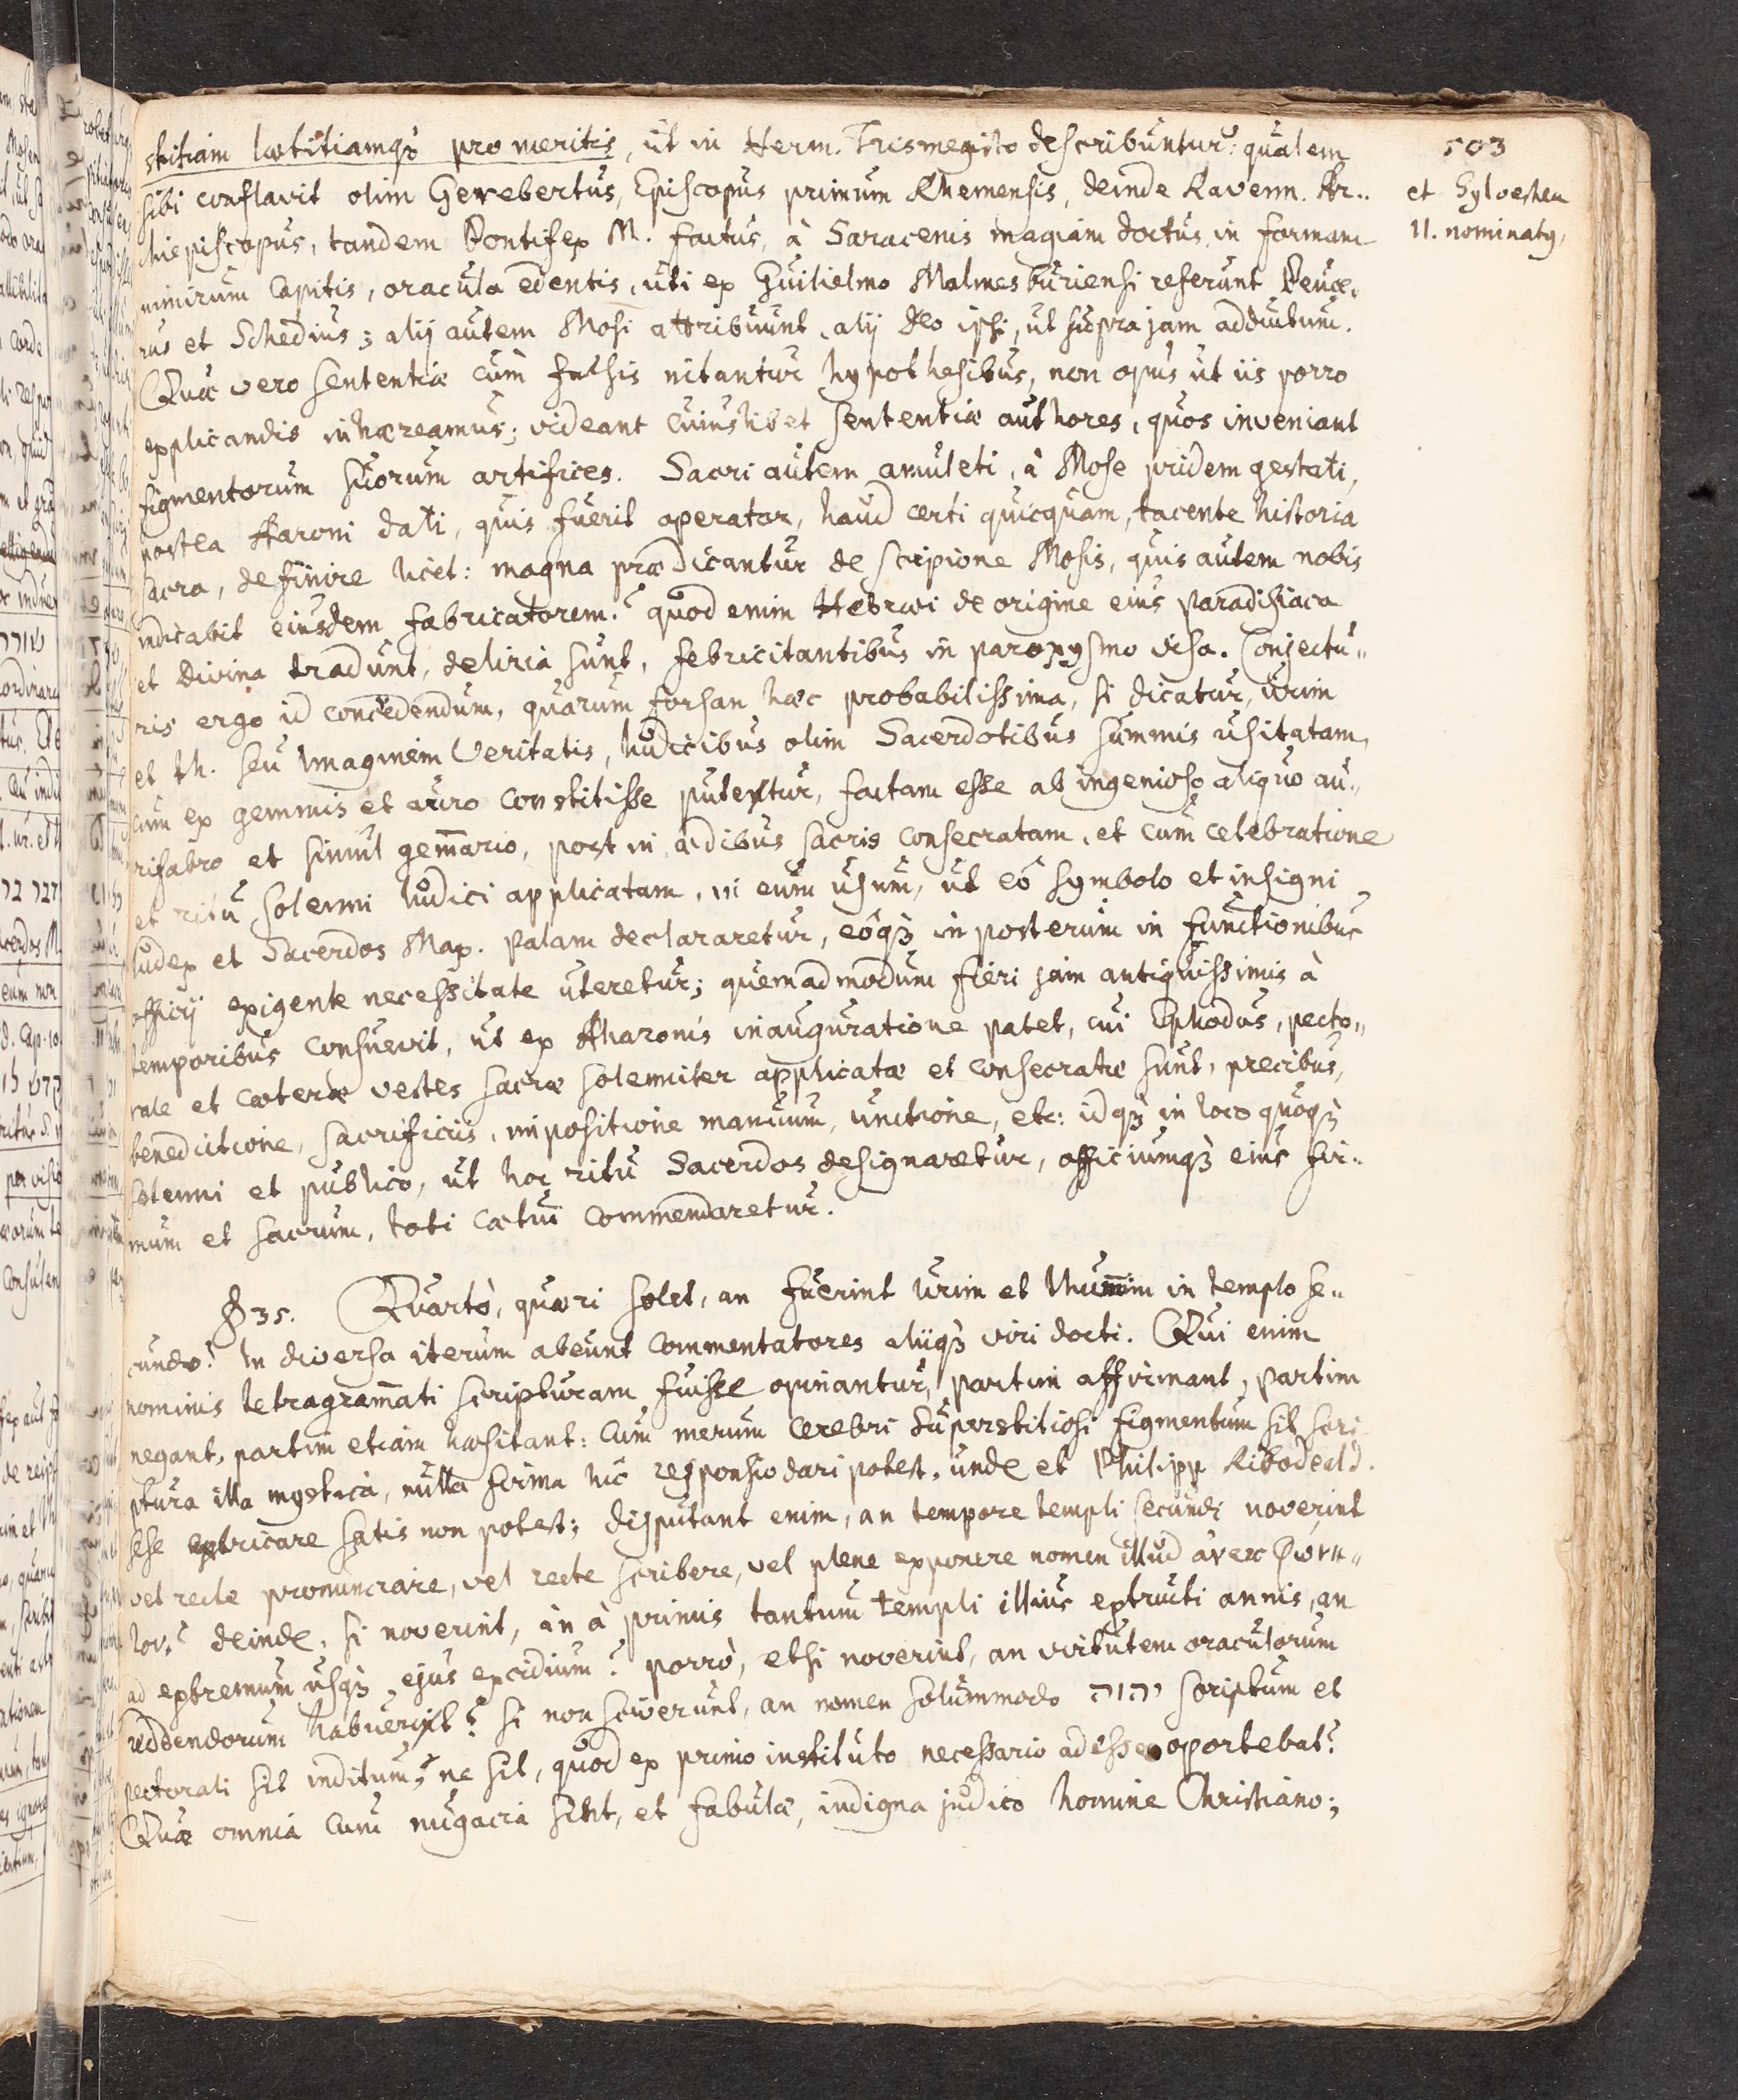 503
stitiam lætitiamqꝫ pro meritis, ut in Herm. Trismegisto describuntur: qualem
sibi conflavit olim Gerebertus, Episcopus primum Rhemensis, deinde Ravenn. Ar..
et Sylvester
chiepiscopus, tandem Pontifex M. factus, à Saracenis magiam doctus, in formam
II. nominatꝰ,
nimirum capitis, oracula edentis, uti ex Guilielmo Malmesburiensi referunt Peuce.
rus et Schedius; alij autem Mosi attribuunt, alij Deo ipsi, ut supra jam adductum.
Quæ vero sententiæ cùm falsis nitantur hypothesibus, non opus ut iis porro
explicandis inhæreamus; videant cuiuslibet sententiæ authores, quos inveniant
figmentorum suorum artifices. Sacri autem amuleti, à Mose pridem gestati,
postea Aaroni dati, quis fuerit operator, haud certi quicquam, tacente historia
sacra, definire licet: magna prædicantur de scipione Mosis, quis autem nobis
indicabit eiusdem fabricatorem? quod enim Hebræi de origine eius paradisiaca
et Divina tradunt, deliria sunt, febricitantibus in paroxysmo visa. Conjectu..
ris ergo id concedendum, quarum forsan hæc probabilissima, si dicatur, urim
et th. seu Imaginem Veritatis, Iudicibus olim Sacerdotibus summis usitatam,
cum ex gemmis et auro constitisse putetur, factam esse ab ingenioso aliquo au..
rifabro et simul gem̄ario, post in ædibus sacris consecratam, et cum celebratione
et ritu solenni Iudici applicatam, in eum usum, ut eô symbolo et insigni
Iudex et Sacerdos Max. palam declararetur, eôqꝫ in posterum in functionibus
officij exigente necessitate uteretur; quemadmodum fieri jam antiquissimis à
temporibus consuevit, ut ex Aharonis inauguratione patet, cui Ephodus, pecto..
rale et cæteræ vestes sacræ solenniter applicatæ et consecratæ sunt, precibus,
benedictione, sacrificiis, impositione manuum, unctione, etc: idqꝫ in loco quoqꝫ
solenni et publico, ut hoc ritu Sacerdos designaretur, officiumqꝫ eius fir..
mum et sacrum, toti cœtui commendaretur.
§ 35. Quartò, quæri solet, an fuerint Urim et Thum̄im in templo se..
cundo? In diversa iterum abeunt commentatores aliiqꝫ viri docti. Qui enim
nominis tetragram̄ati scripturam fuisse opinantur, partim affirmant, partim
negant, partim etiam hæsitant: Cum merum cerebri superstitiosi figmentum sit scri
ptura illa mystica, nulla firma hic responsio dari potest, unde et Philipp Ribodeald.
sese extricare satis non potest; disputant enim, an tempore templi secundi noverint
vel recte pronunciare, vel recte scribere, vel plene exponere nomen illud ἀνεκφώνη..
τον? deinde, si noverint, an à primis tantum templi illius extructi annis, an
ad extremum usqꝫ ejus excidium? porrò, etsi noverint, an virtutem oraculorum
reddendorum habuerit? si non sciverunt, an nomen solummodo יהוה scriptum et
pectorali sit inditum, ne sit, quod ex primo instituto necessario adesse oportebat?
Quæ omnia cum nugacia sint, et fabulæ, indigna judico homine Christiano;